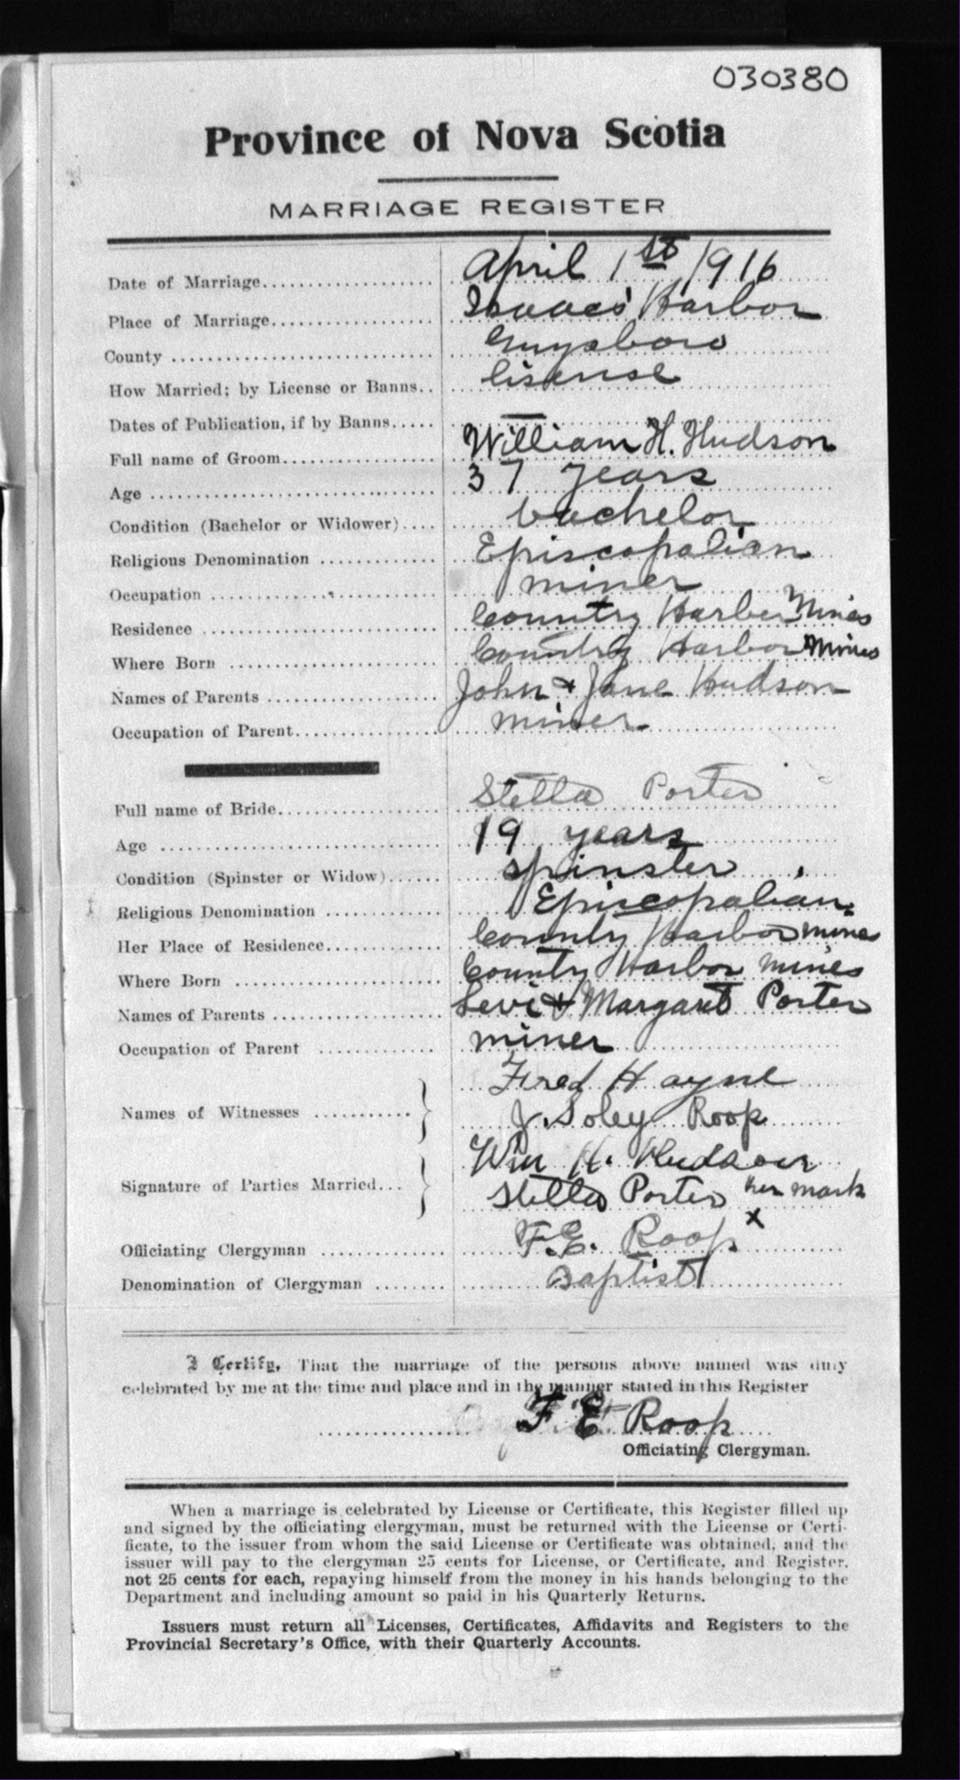 030380
Province of Nova Scotia
MARRIAGE REGISTER
Date of Marriage.................... April 1st, 1916
Place of Marriage................... Isaacs' Harbor
County .............................. Guysboro
How Married; by License or Banns.. lisense
Dates of Publication, if by Banns..... —
Full name of Groom.................. William H. Hudson
Age .................................. 37 years
Condition (Bachelor or Widower).... bachelor
Religious Denomination ............. Episcopalian
Occupation .......................... miner
Residence ........................... Country Harber Mines
Where Born ......................... Country Harbor Mines
Names of Parents ................... John & Jane Hudson
Occupation of Parent................. miner
Full name of Bride................... Stella Porter
Age .................................. 19 years
Condition (Spinster or Widow)...... spinster
Religious Denomination ............. Episcopalian.
Her Place of Residence.............. Country Harbor mines
Where Born ......................... Country Harbor mines
Names of Parents ................... Levi & Margaret Porter
Occupation of Parent ............... miner
Fred Hayne
Names of Witnesses ........... } J. Soley Roop
Wm H. Hudson
Signature of Parties Married... } Stella Porter her mark
x
Officiating Clergyman .............. F.E. Roop
Denomination of Clergyman ........ Baptist
I Certify, That the marriage of the persons above named was duly
celebrated by me at the time and place and in the manner stated in this Register
F E Roop
Officiating Clergyman.
When a marriage is celebrated by License or Certificate, this Register filled up
and signed by the officiating clergyman, must be returned with the License or Certi-
ficate, to the issuer from whom the said License or Certificate was obtained, and the
issuer will pay to the clergyman 25 cents for License, or Certificate, and Register,
not 25 cents for each, repaying himself from the money in his hands belonging to the
Department and including amount so paid in his Quarterly Returns.
Issuers must return all Licenses, Certificates, Affidavits and Registers to the
Provincial Secretary's Office, with their Quarterly Accounts.